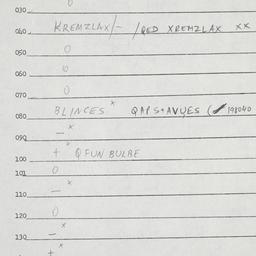 030
0
040 KREMZLAX/- /QED XREMZLAX XX
050 0
060 0
070 0
080 BLINCES x QAPS+AVYES ( 198040
090 - x
100 + x QFUN BULBE
101 0
110 - x
120 0
130 - x
+ x